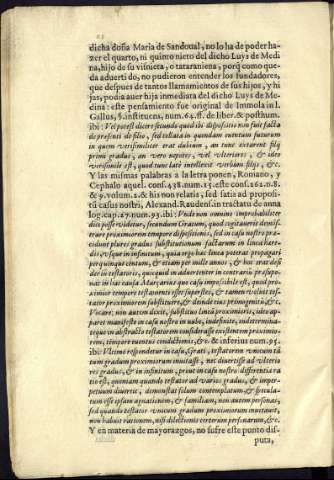 dicha doña Maria de Sandoual, no lo ha de poder ha-
zer el quarto, ni quinto nieto del dicho Luys de Medi
na, hijo de su visnieta, o tataranieta, porq̃ como que-
da aduertido, no pudieron entender los fundadores,
que despues de tantos llamamientos de sus hijos, y hi
jas, podia auer hija inmediata del dicho Luys de Me-
dina: este pensamiento fue original de Immola in l.
Gallus, §. instituens, num. 64. ff. de liber. & posthum.
ibi: Vel potest dicere secundo quod ibi dispositio non fuit facta
de præsenti de filio, sed
in quem verisimiliter erat dubium, an tunc extarent filij
primi gradus, an vero nepotes, vel vlteriores, & ideo
verisimile est, quod tunc late intellexit verbum filij, &c.
Y las mismas palabras a la letra ponen, Romano, y
Cephalo aquel cons. 438. num. 15. este cons. 162. n. 8.
& 9. volum. 2. & his non relatis, sed satis ad proposi-
tũ casus nostri, Alexand. Raudens. in tractatu de anna
log. cap. 27. num. 93. ibi: Vnde non omnino improbabiliter
dici posse videtur, secundum Gratum, quod cogitaueris demit-
terare proximiorem tempore dispositionis, sed in casu nostro pro-
uidens plures gradus substitutionum factarum in linea hære-
dis, vsque in infinitum, quia ergo hæc linea poterat propagari
per quinque centum, & etiam per mille annos, & hoc erat desi-
der iũ testatoris, quicquid in aduertenter in contrariũ præsupo-
nat in hac causa Mar, arius, quæ casu impossibile est, quod pro-
ximior tempore testamenti esset superstes, & tamen voluit tes-
tator proximiorem substituere, & donde eius primogenitũ &c.
Vocare: non autem dixit, substituo lineã proximioris, vnde appa-
ret manifeste in casu nostro in nube, indefinite, indetermina-
teque in abstracto testatorem considerasse existentem proximio-
rem, tempore euentus conditionis, &c. & inferius num. 95.
ibi: Vltimo respondetur in casu, Grati, testatorem vnicum tã
tum gradum proximiorum inuitasse, nec diuertisse ad vlterio
res gradus, & in infinitum, prout in casu nostro differentia ra
tio est, quoniam quando testator ad varios gradus, & imper-
petuum diuertit, demonstrat solum contemplatam, & specula-
tum esse ipsam agnationem, & familiam, non autem personas,
sed quando testator vnicum gradum proximiorum inuitauit,
non habuit rationem, nisi dilectionis certarum personarum, &c.
Y en materia de mayorazgos, no sufre este punto dis-
puta,